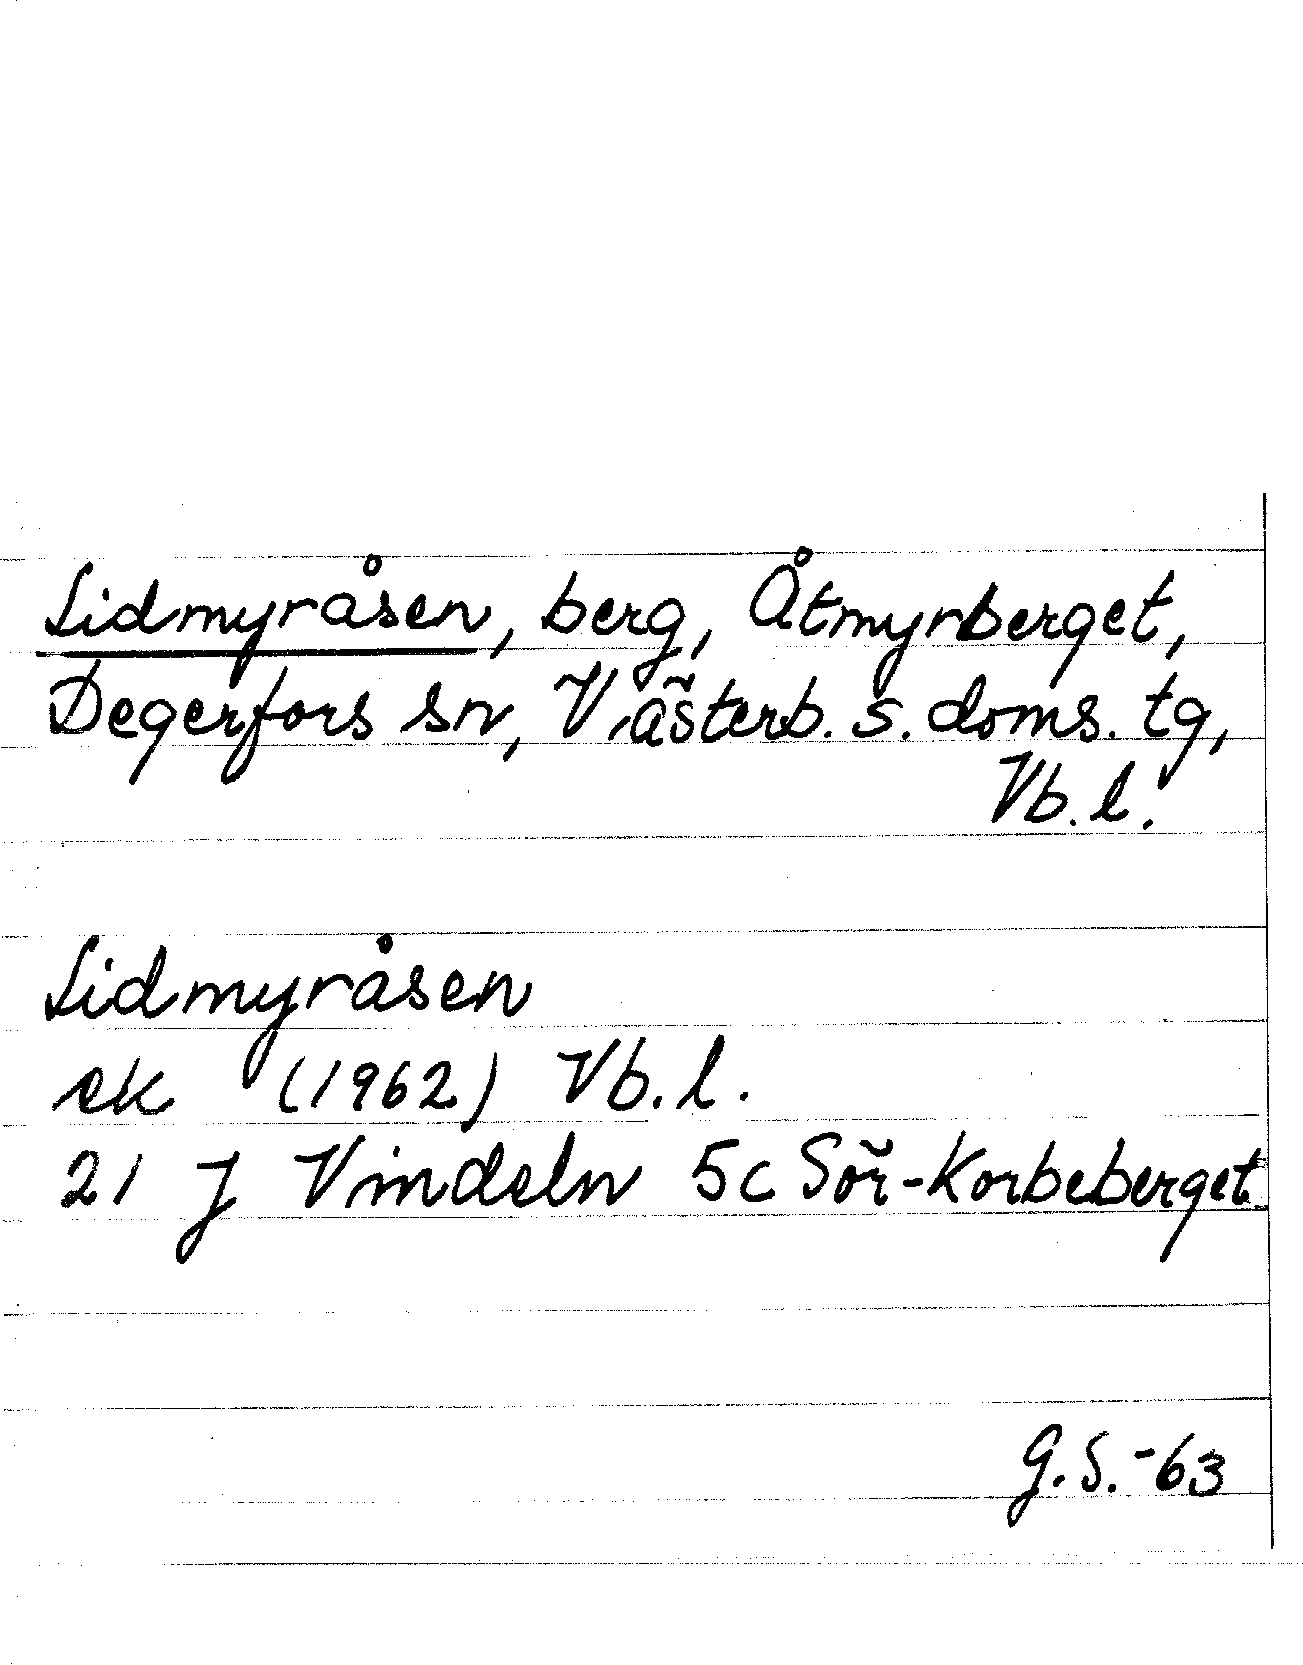 Lidmyråsen, berg, Åtmyrberget,
Degerfors sn, Västerb. s. doms. tg,
Vb. l.
Lidmyråsen
ek (1962) Vb. l.
21 J Vindeln 5c Sör-Korbeberget
G.S.-63